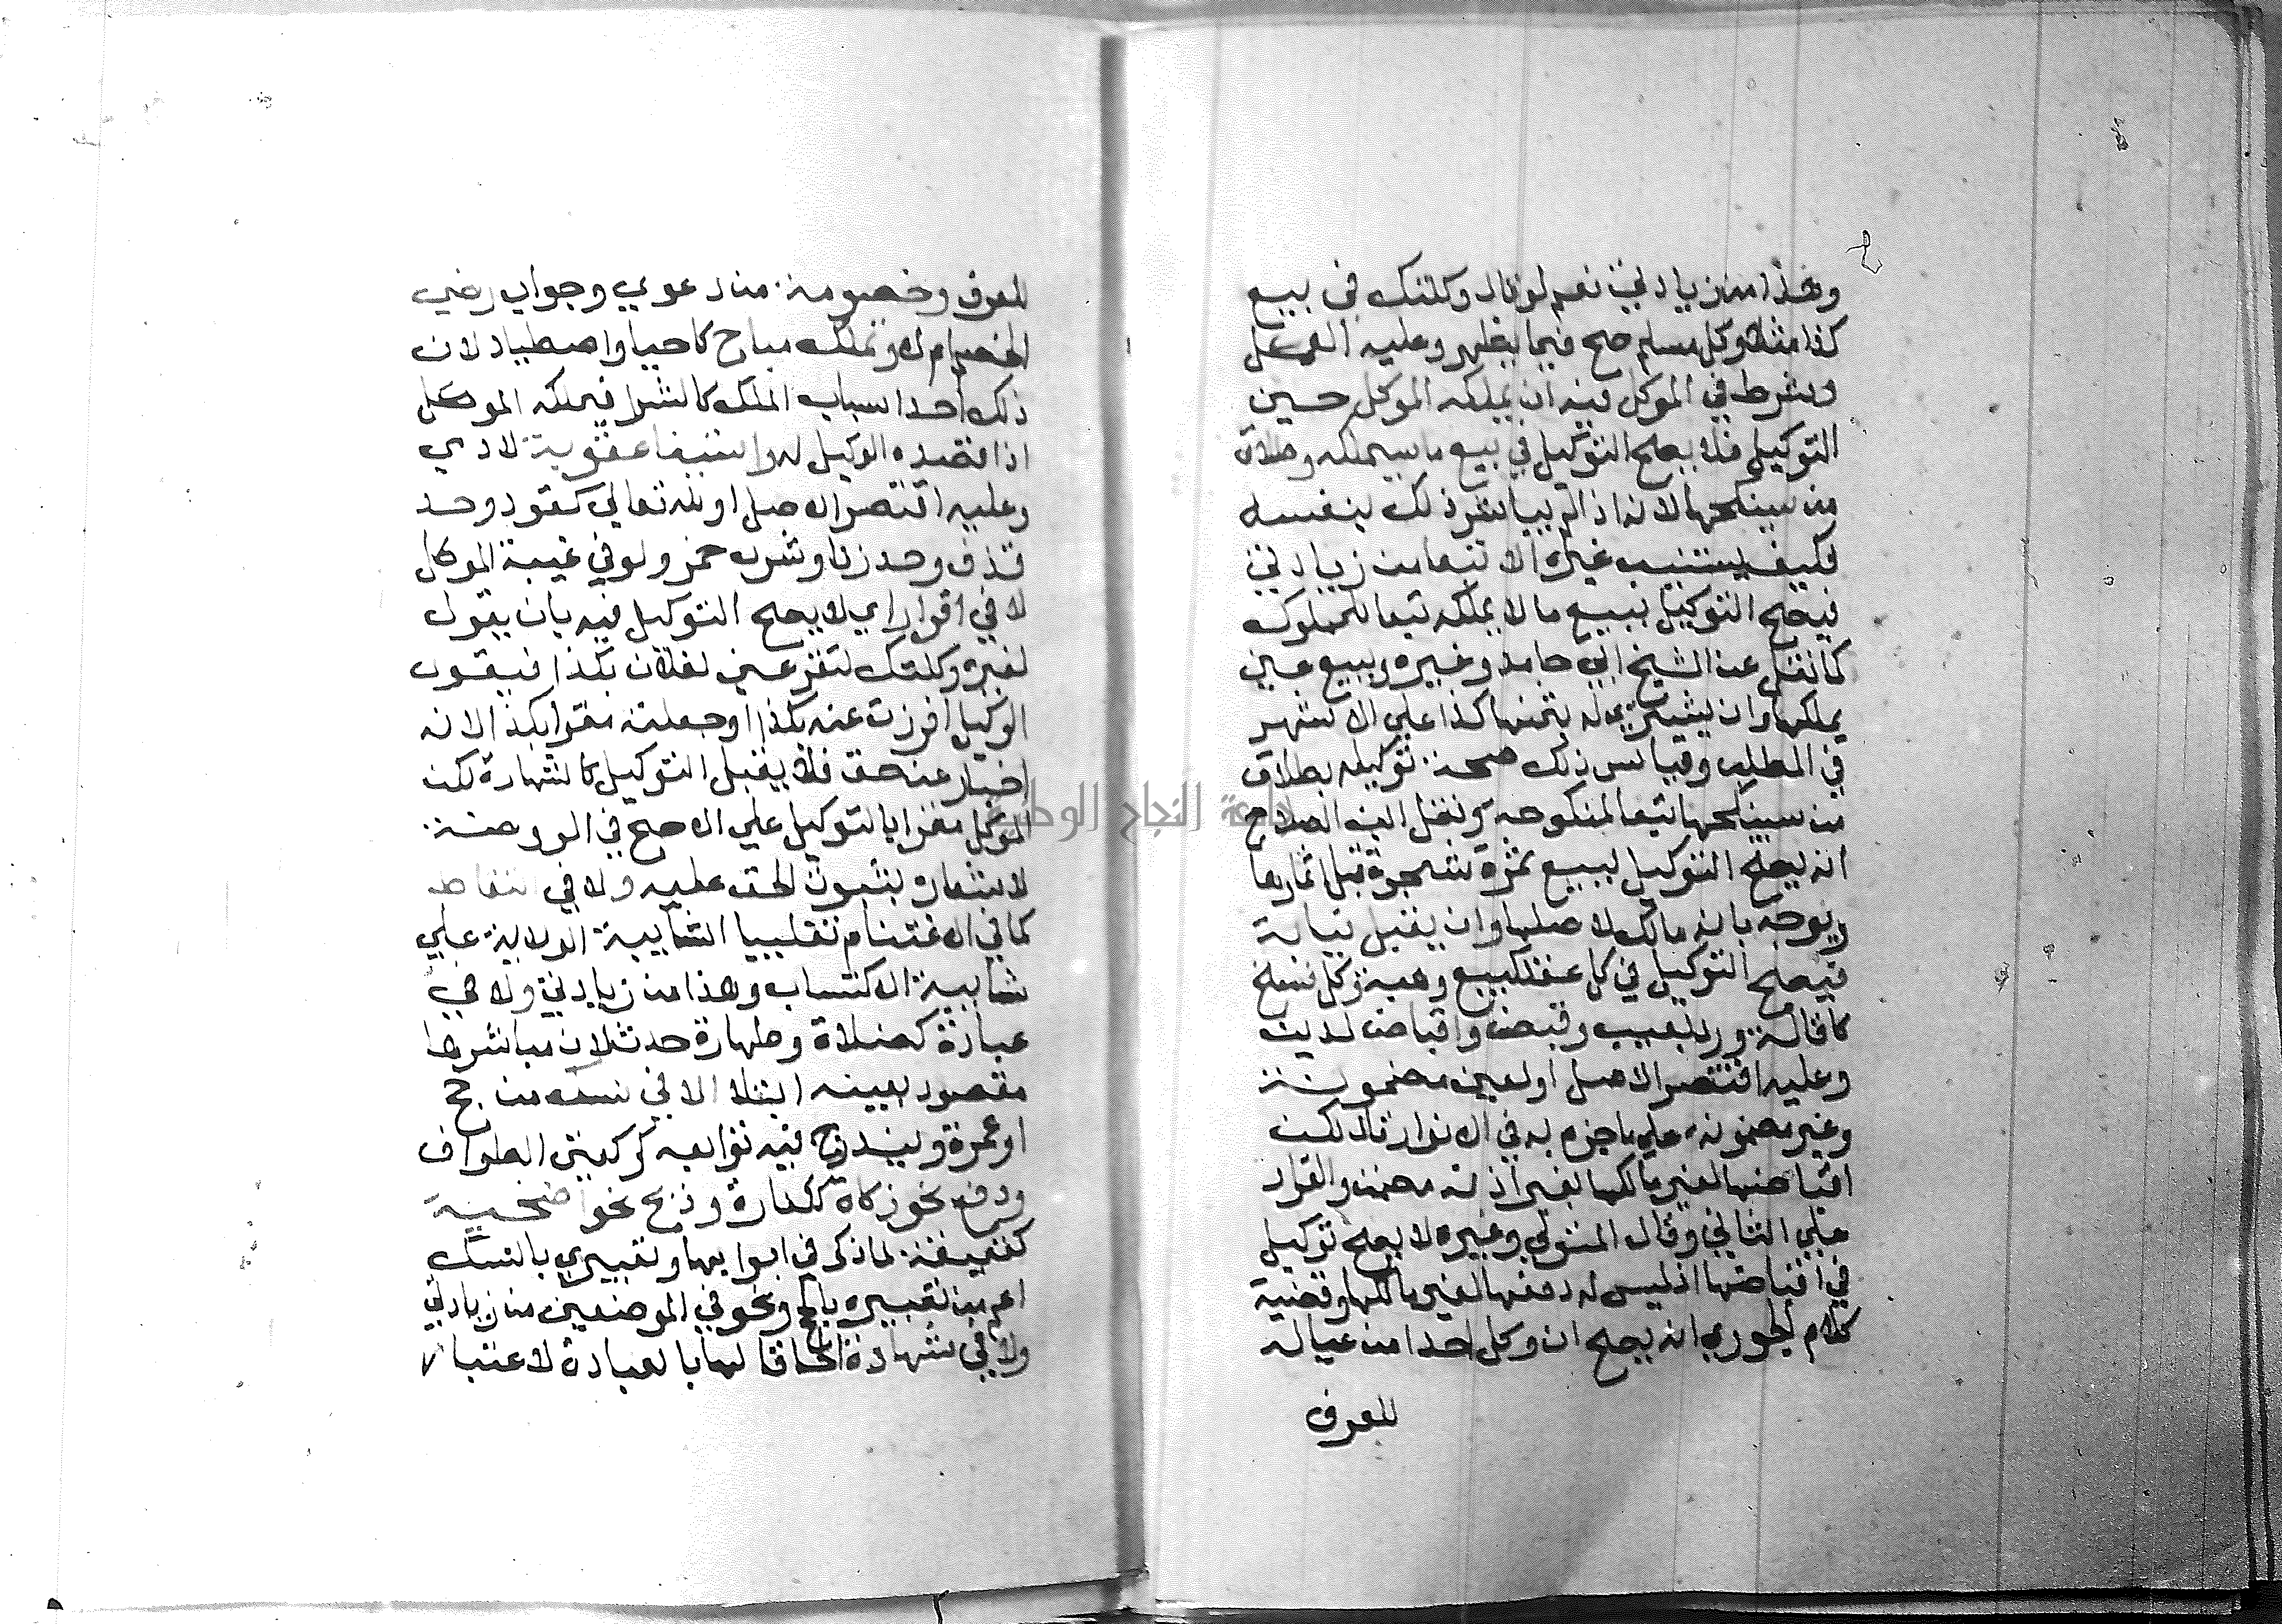 وهذا من زيادتي نعم لو قال وكلتك في بيع
كذا مثلا وكل مسلم صح فيما يظهر وعليه العمل
وشرط في الموكل فيه ان يملكه الموكل حين
التوكيل فلا يصح التوكيل في بيع ما سيملكه وطلاق
من سينكحها لانه اذا لم يباشر ذلك بنفسه
فكيف يستنيب غيره الا تبعا من زيادتي
فيصح التوكيل ببيع ما لا يملكه تبعا للمملوك
كما نقل عن الشيخ ابي حامد وغيره وببيع عين
يملكها وان يشتري له بثمنها كذا على الاشهر
في المطلب وقياس ذلك صحة توكيله بطلاق
من سينكحها تبعا لمنكوحته ونقل ابن الصلاح
انه يصح التوكيل ببيع ثمرة شجرة قبل اثمارها
ويوجه بانه مالك لاصلها وان يقبل نيابة
فيصح التوكيل في كل عقد كبيع وهبة وكل فسخ
كاقالة ورد بعيب وقبض واقباض لدين
وعليه اقتصر الاصل او لعين مضمونة
وغير مضمونة على ما جزم به في الانوار قال لكن
اقباضها لغير مالكها بغير اذنه مضمن والقرار
على الثاني وقال المتولي وغيره لا يصح توكيل
في اقباضها اذ ليس له دفعها لغير مالكها وقضية
كلام الجوري انه يصح ان وكل احدا من عياله
للعرف
للعرف وخصومة من دعوي وجواب رضي
الخصم ام لا وتملك مباح كاحيا واصطياد لان
ذلك احد اسباب الملك كالشرا فيملكه الموكل
اذا قصده الوكيل له واستيفا عقوبة لادمي
وعليه اقتصر الاصل او لله تعالي كقود وحد
قذف وحد زنا وشرب خمر ولو في غيبة الموكل
لا في اقرار اي لا يصح التوكيل فيه بان يقول
لغيره وكلتك لتقر عني لفلان بكذا فيقول
الوكيل اقررت عنه بكذا او جعلته مقرا بكذا لانه
اخبار عن حق فلا يقبل التوكيل كالشهادة لكن
الموكل مقرا بالتوكيل علي الاصح في الروضة
لاشعاره بثبوت الحق عليه ولا في التقاط
كما في الاغتنام تغليبا لشايبة الولاية علي
شايبة الاكتساب وهذا من زيادتي ولا في
عبادة كصلاة وطهارة حدث لان مباشرها
مقصود بعينه ابتلا الا في نسك من حج
او عمرة ويندرج فيه توابعه كركعتي الطواف
ودفع نحو زكاة ككفارة وذبح نحو اضحية
كعقيقة لما ذكر في ابوابها وتعبيري بالنسك
اعم من تعبيره بالحج ونحو في الموضعين من زيادتي
ولا في شهادة الحاقا لها بالعبادة لاعتبار
جامعة النجاح الوطنية